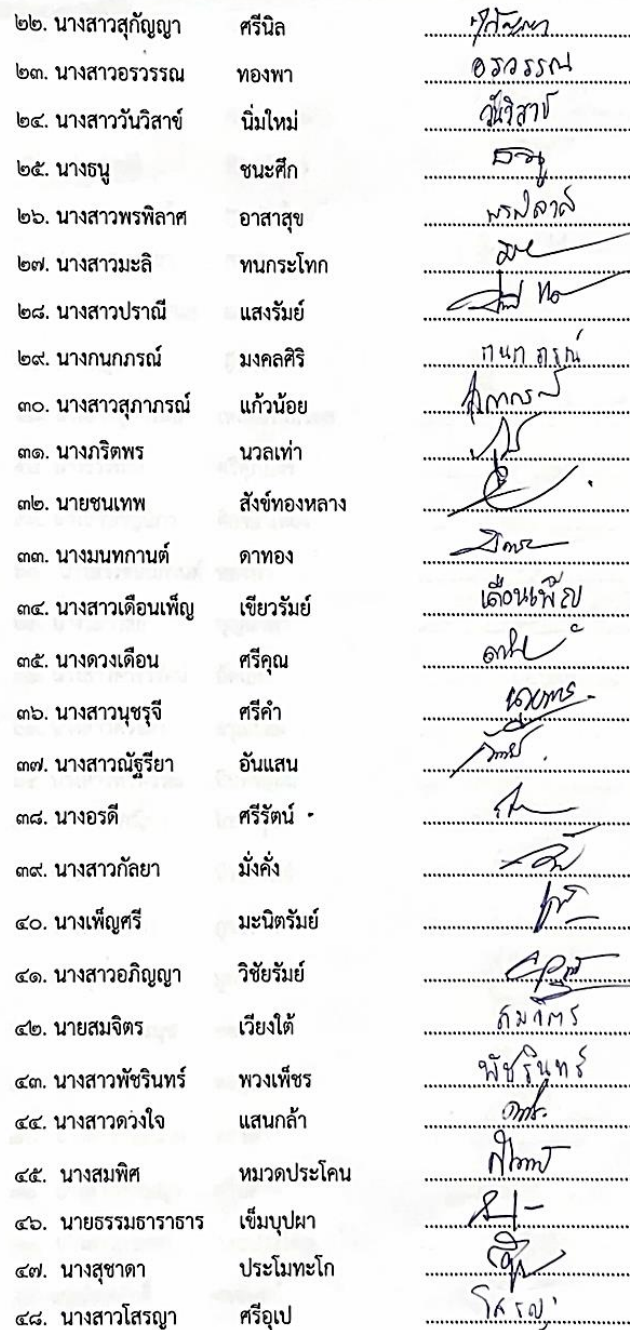 ๒๒. นางสาวสุกัญญา ศรีนิล
๒๓. นางสาวอรวรรณ ทองพา อรวรรณ
๒๔. นางสาววันวิสาข์ นิ่มใหม่ วันวิสาข์
๒๕. นางธนู ชนะศึก ธนู
๒๖. นางสาวพรพิลาศ อาสาสุข พรพิลาศ
๒๗. นางสาวมะลิ ทนกระโทก
๒๘. นางสาวปราณี แสงรัมย์
๒๙. นางกนกภรณ์ มงคลศิริ กนกภรณ์
๓๐. นางสาวสุภาภรณ์ แก้วน้อย
๓๑. นางภริตพร นวลเท่า
๓๒. นายชนเทพ สังข์ทองหลาง
๓๓. นางมนทกานต์ ดาทอง
๓๔. นางสาวเดือนเพ็ญ เขียวรัมย์ เดือนเพ็ญ
๓๕. นางดวงเดือน ศรีคุณ
๓๖. นางสาวนุชรุจี ศรีคำ
๓๗. นางสาวณัฐรียา อันแสน
๓๘. นางอรดี ศรีรัตน์
๓๙. นางสาวกัลยา มั่งคั่ง
๔๐. นางเพ็ญศรี มะนิตรัมย์
๔๑. นางสาวอภิญญา วิชัยรัมย์
๔๒. นายสมจิตร เวียงใต้ สมจิตร
๔๓. นางสาวพัชรินทร์ พวงเพ็ชร พัชรินทร์
๔๔. นางสาวดวงใจ แสนกล้า
๔๕. นางสมพิศ หมวดประโคน
๔๖. นายธรรมธาราธาร เข็มบุปผา
๔๗. นางสุชาดา ประโมทะโก
๔๘. นางสาวโสรญา ศรีอุเป โสรญา